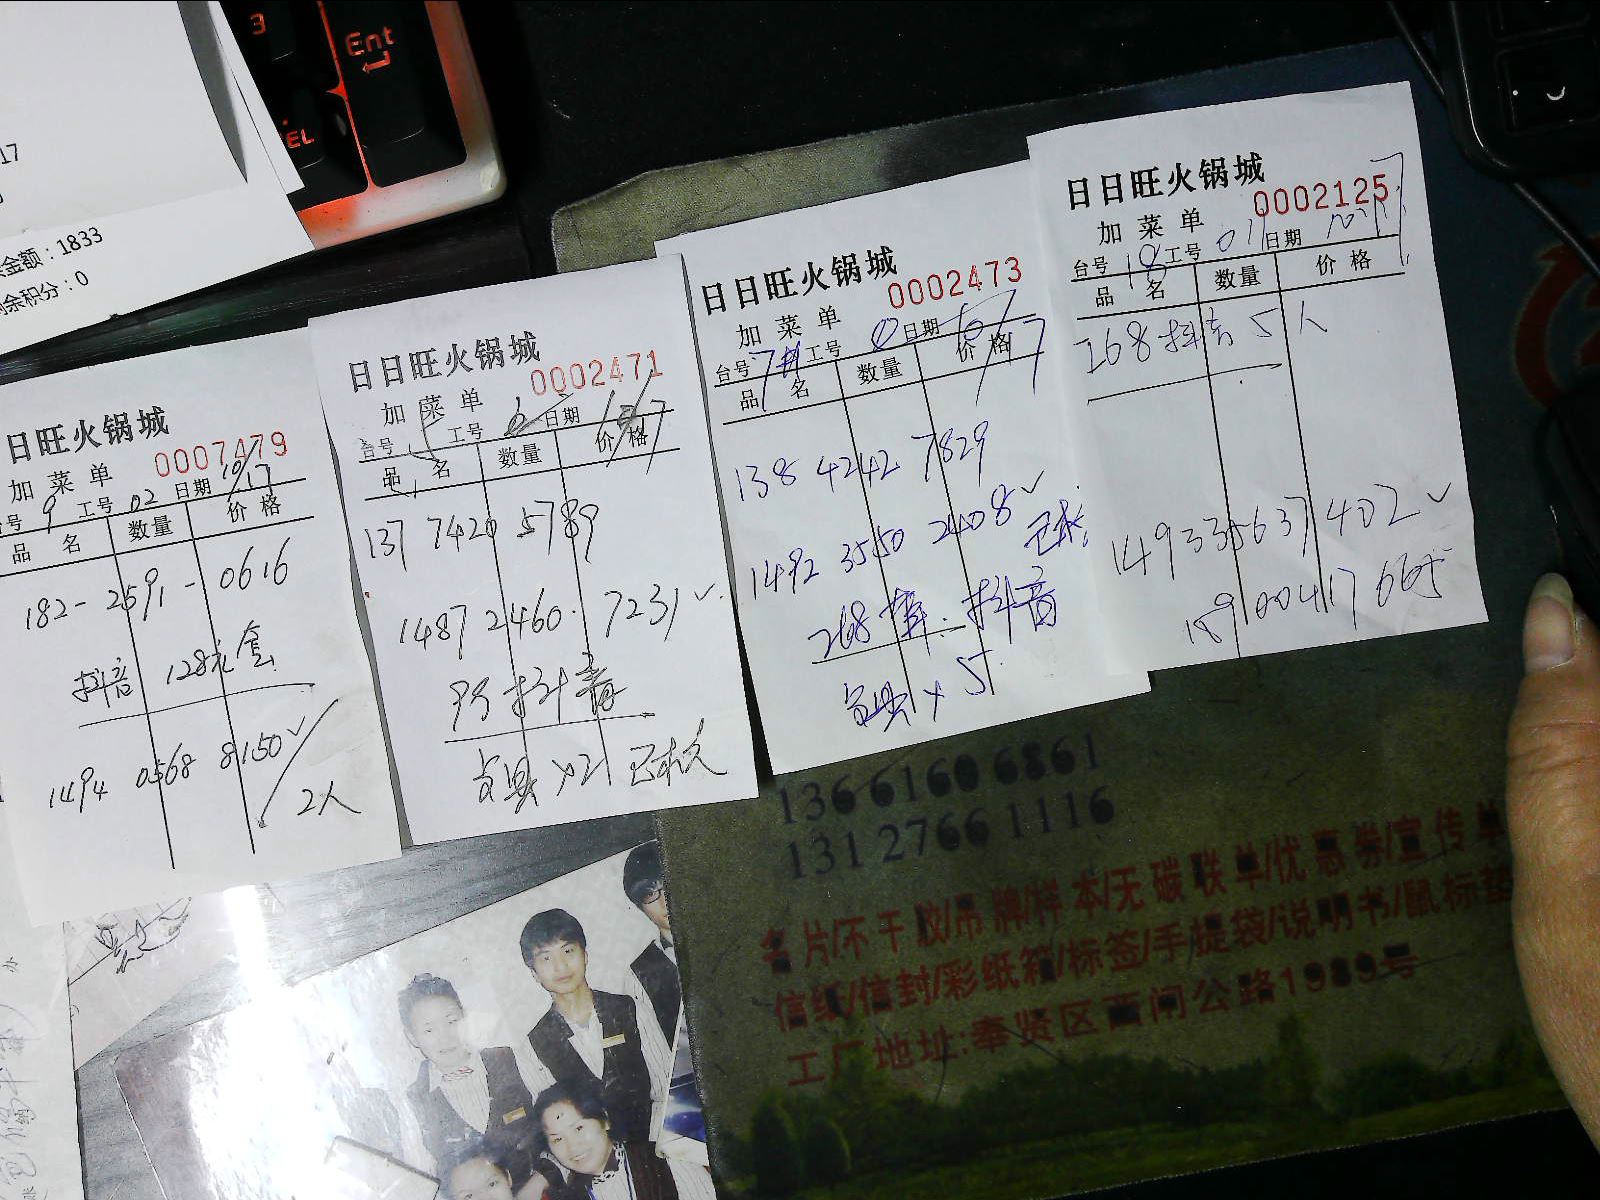 3
Ent
EL
17
金额：1833
余积分：0
日旺火锅城
0007479
加菜单
台号 9 工号 02 日期 10/17
品名 数量 价格
182-2591-0616
抖音 128元套
1494 0568 8150✓
2人
日日旺火锅城
0002471
加菜单
台号 工号 日期
品名 数量 价格
137 7420 5789
1487 2460 7231✓
抖音
已核
日日旺火锅城
0002473
加菜单
台号 7# 工号 日期
品名 数量 价格
138 4242 7829
1492 3550 2408✓
已核
268 抖音
x 5
日日旺火锅城
0002125
加菜单
台号 18 工号 011 日期
品名 数量 价格
268 抖音 5人
1493 3563 7402✓
189 0041 7665
136 6160 6861
131 2766 1116
名片/不干胶/吊牌/样本/无碳联单/优惠券/宣传单
信纸/信封/彩纸箱/标签/手提袋/说明书/鼠标垫
工厂地址:奉贤区西闸公路1989号